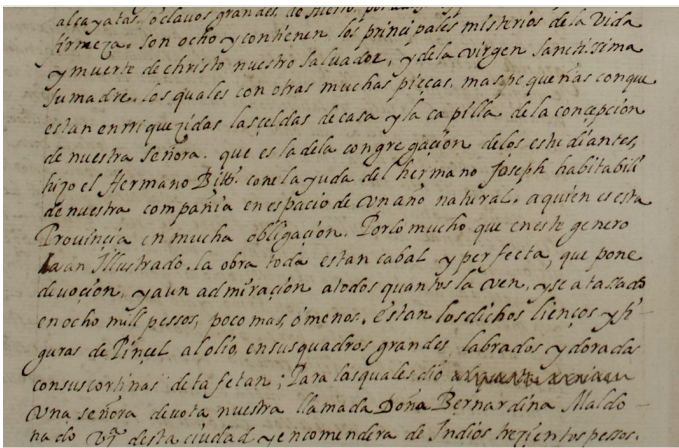 alcayatas, ó clavos grandes, de suerte,
firmeza. son ocho y contienen los principales misterios de la Vida
y muerte de christo nuestro Salvador, y de la virgen Sanctissima
su madre. los quales con otras muchas pieças, mas pequeñas con que
estan enrriquezidas las celdas de casa y la capilla de la concepcion
de nuestra señora. que es la de la congregaçion de los estudiantes,
hizo el Hermano Bitti. con el ayuda del hermano Joseph habitabili
de nuestra compañia en espacio de un año natural. a quien es esta
Provinçia en mucha obligaçion. Por lo mucho que en este genero
la an Illustrado. la obra toda es tan cabal y perfecta, que pone
devoçion, y aun admiraçion a todos quantos la ven, y se a tassado
en ocho mill pessos, poco mas, ó menos. estan los dichos lienços y fi-
guras de Pinçel al olio, en sus quadros grandes, labrados y dorados
con sus cortinas de tafetan; Para las quales dio
Una señora devota nuestra llamada Doña Bernardina Maldo-
nado vª desta ciudad y encomendera de Indios trezientos pesos.